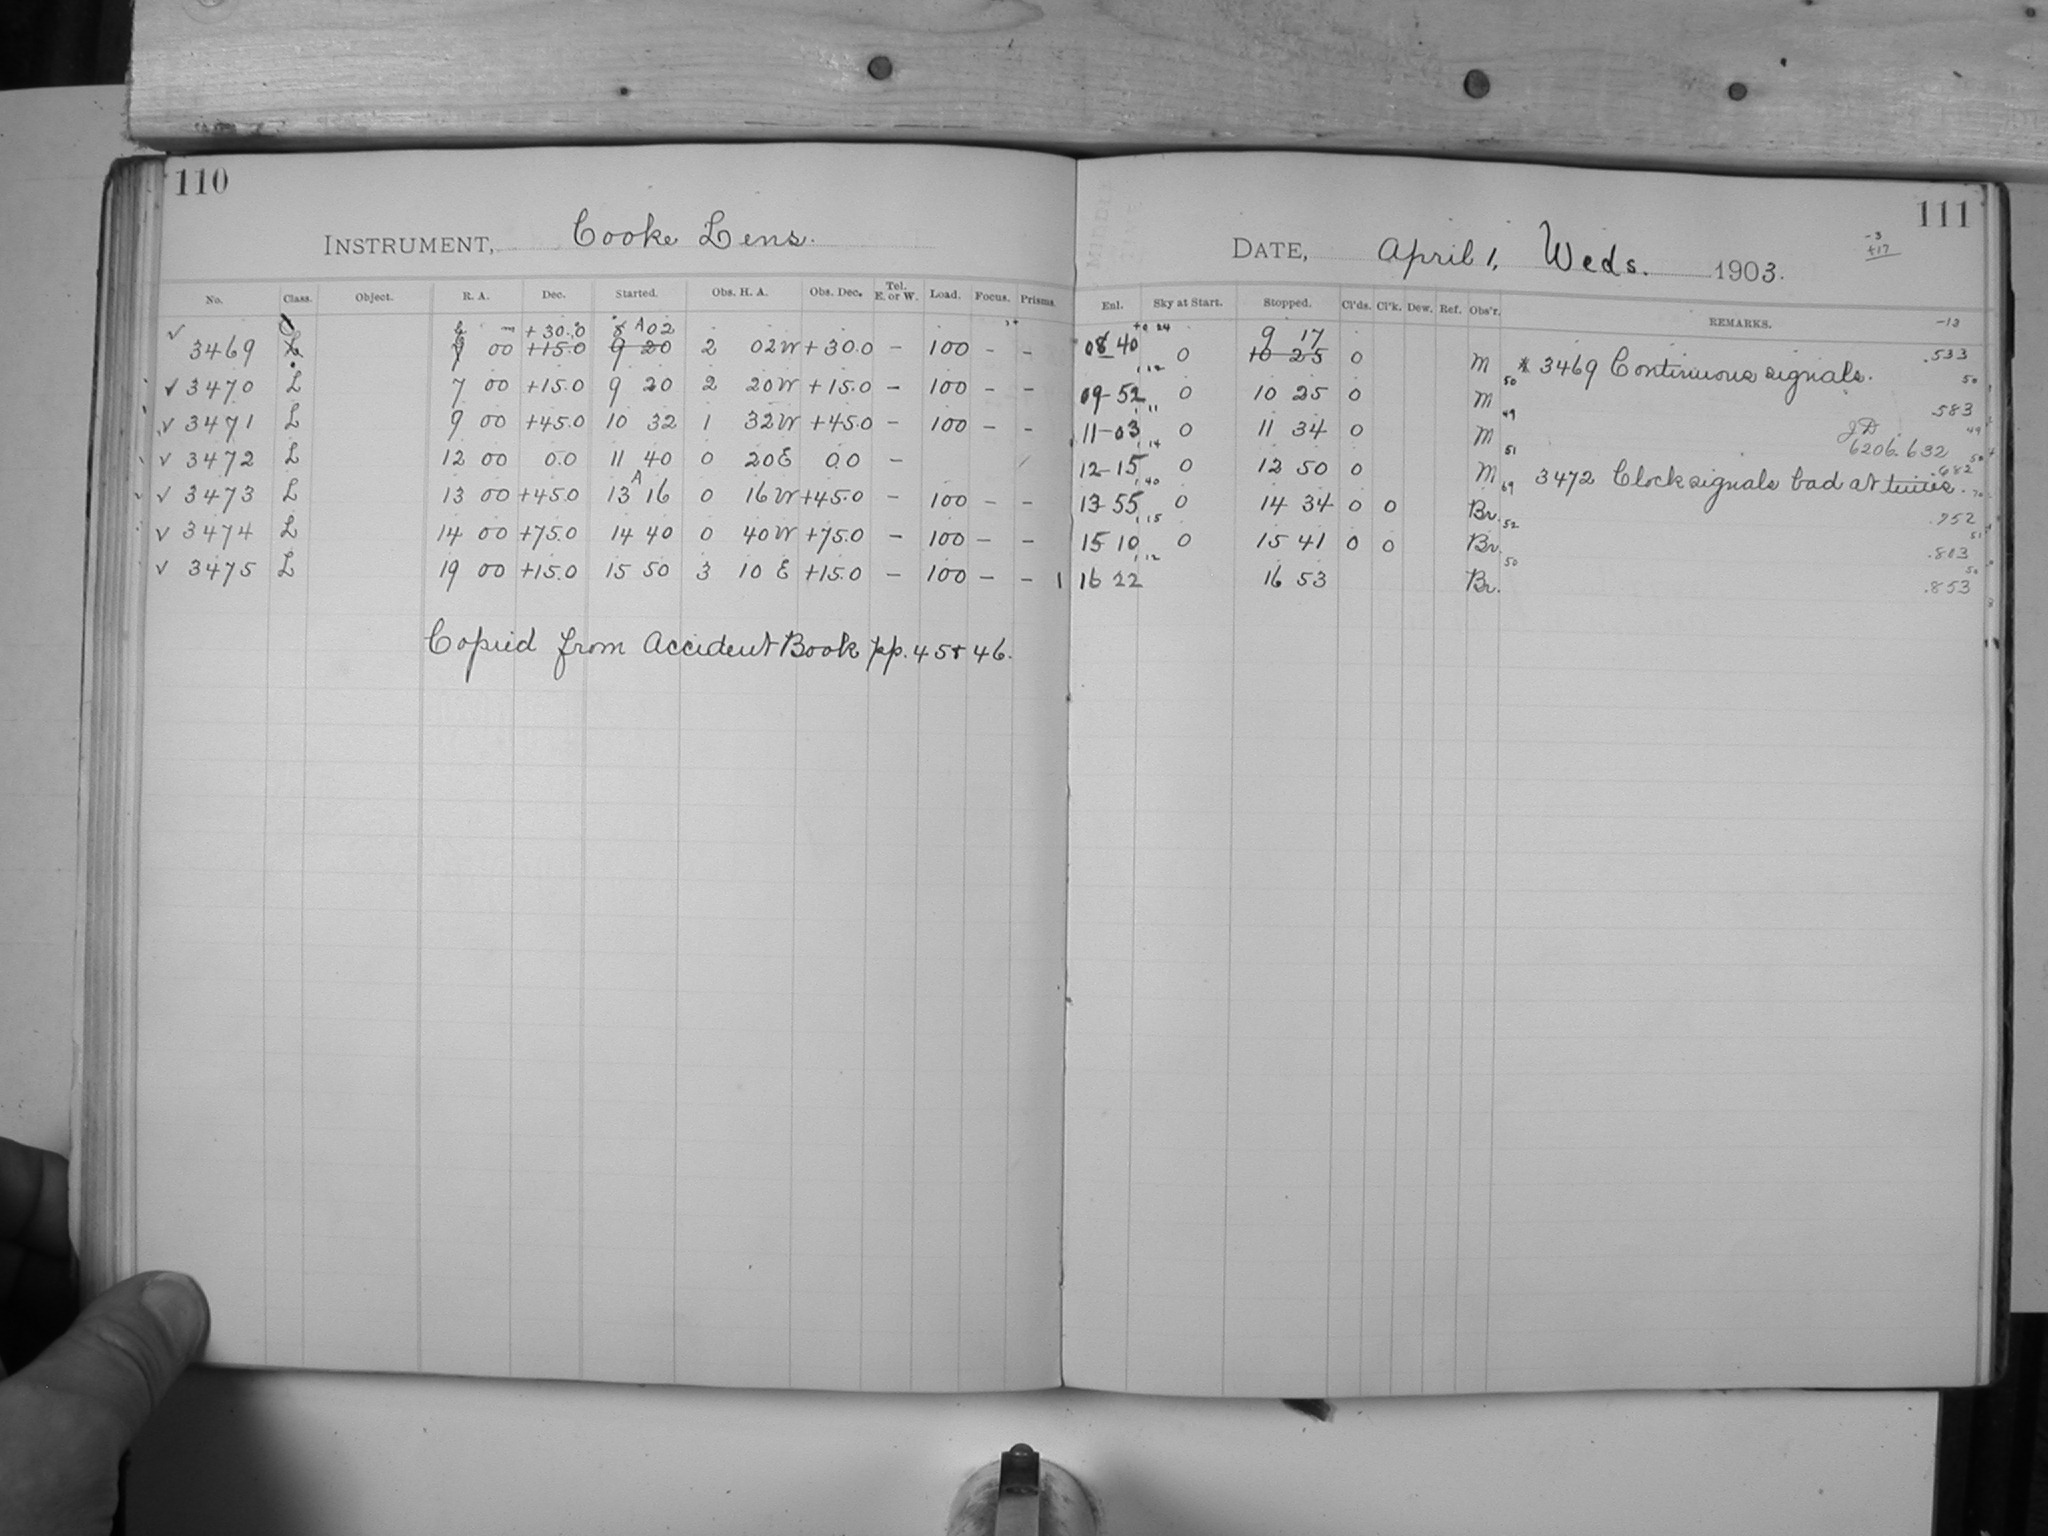 110
INSTRUMENT, Cooke Lens.
No. Class. Object. R. A. Dec. Started. Obs. H. A. Obs. Dec. Tel. E. or W. Load. Focus. Prisms.
+30.0 8 A 02
√ 3469 00 +15.0 9 20 2 02 W +30.0 – 100 – –
√ 3470 L 7 00 +15.0 9 20 2 20 W +15.0 – 100 – –
√ 3471 L 9 00 +45.0 10 32 1 32 W +45.0 – 100 – –
√ 3472 L 12 00 0.0 11 40 0 20 E 0.0 –
√ 3473 L 13 00 +45.0 13 A 16 0 16 W +45.0 – 100 – –
√ 3474 L 14 00 +75.0 14 40 0 40 W +75.0 – 100 – –
√ 3475 L 19 00 +15.0 15 50 3 10 E +15.0 – 100 – –
Copied from Accident Book pp. 45 & 46.
111
DATE, April 1, Weds. 1903.
-3
+17
Enl. Sky at Start. Stopped. Cl'ds. Cl'k. Dew. Ref. Obs'r. REMARKS. -13
9 17
08 40 0 10 25 0 M * 3469 Continuous signals. .533
50 50
09-52 0 10 25 0 M .583
49 49
11-03 0 11 34 0 M J D 6206.632
51 50
12-15 0 12 50 0 M 3472 Clock signals bad at times. .682
69 70
13-55 0 14 34 0 0 Br. .752
52 51
15 10 0 15 41 0 0 Br. .803
50 50
16 22 16 53 Br. .853